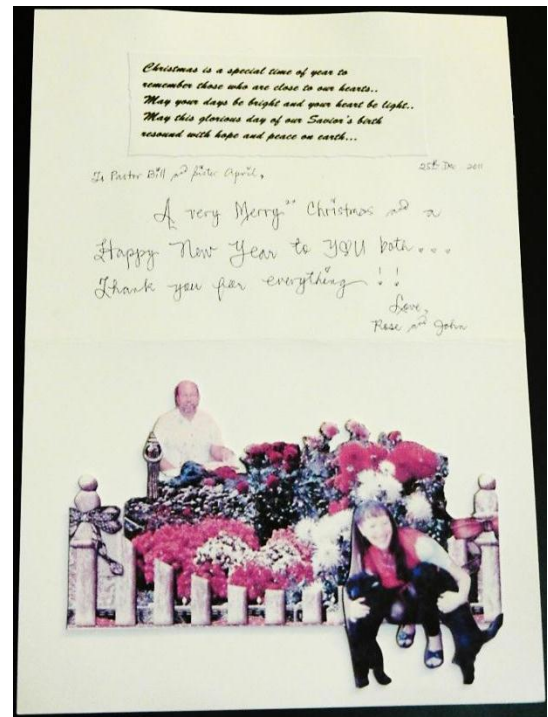 Christmas is a special time of year to
remember those who are close to our hearts..
May your days be bright and your heart be light..
May this glorious day of our Savior's birth
resound with hope and peace on earth...
25th Dec 2011
To Pastor Bill and Pastor April,
A very Merry Christmas and a
Happy New Year to YOU both...
Thank you for everything !!
Love,
Rose and John